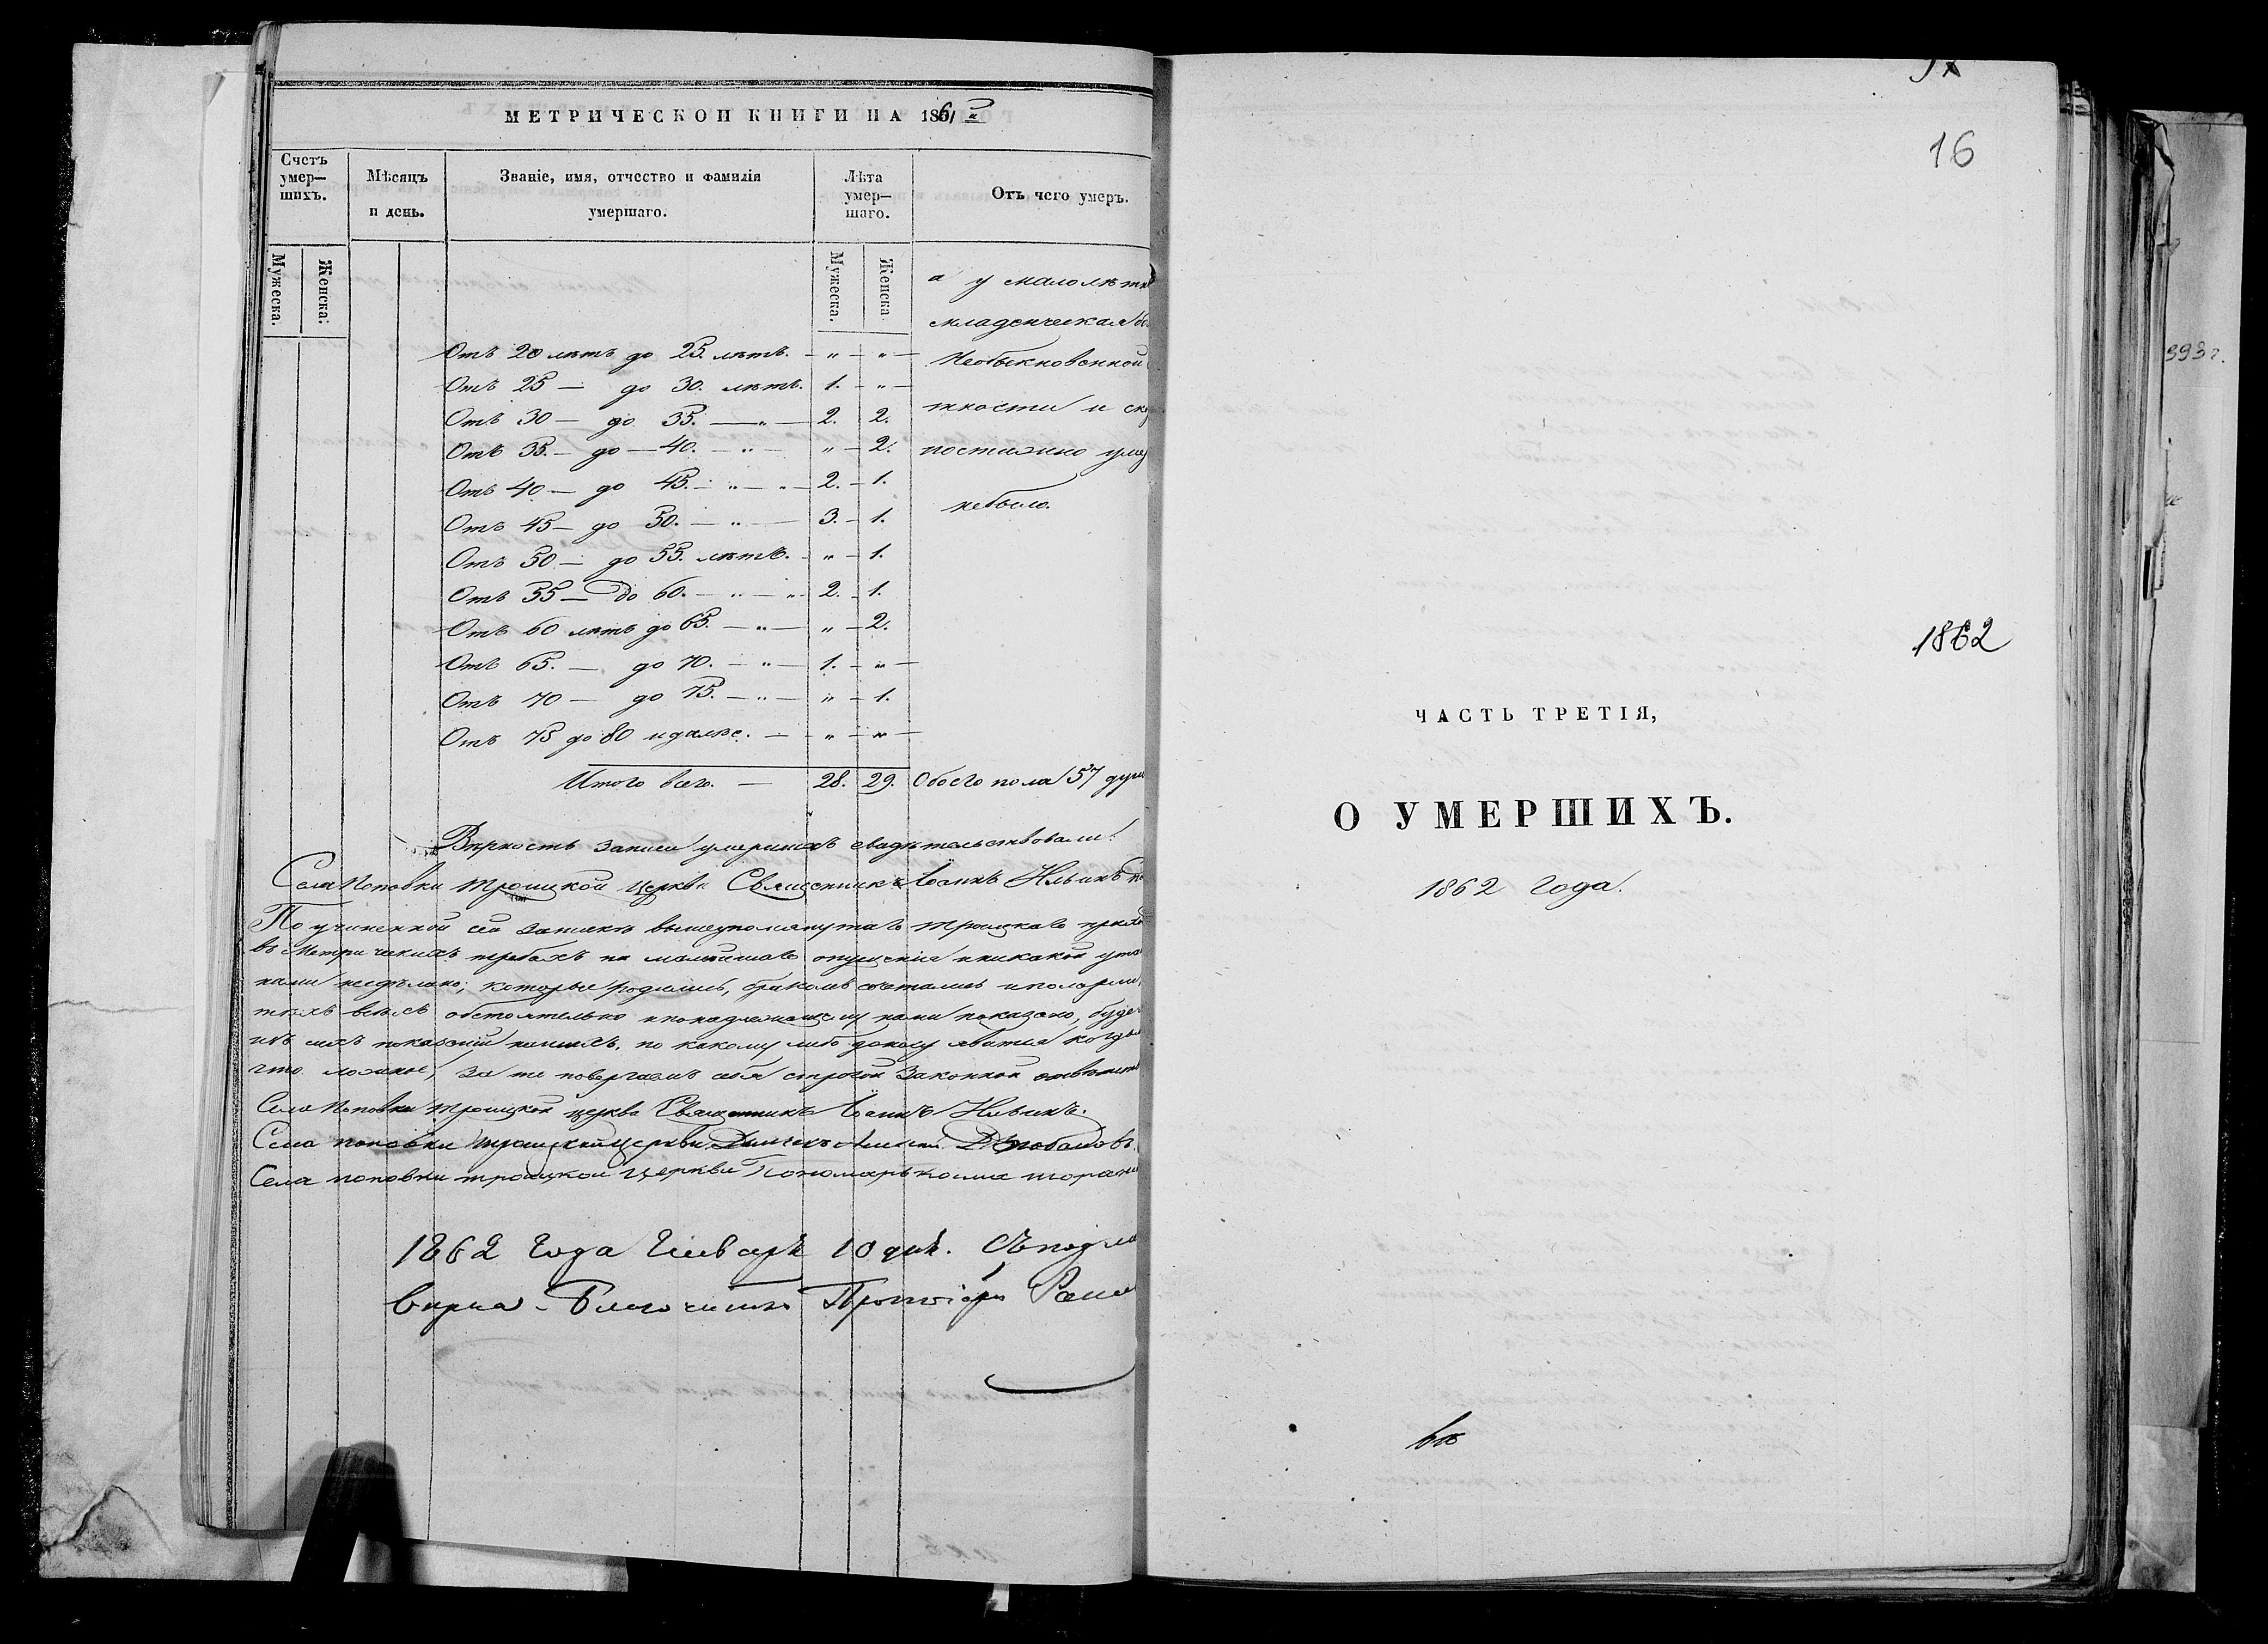 МЕТРИЧЕСКОЙ КНИГИ НА 1861
Счетъ умер—шихъ.
Мѣсяцъ и день.
Званіе, имя, отчество и фамилія умершаго.
Лѣта умер—шаго.
Отъ чего умеръ.
Мужеска.
Женска:
Мужеска.
Женска
а у малолѣтн
младенческая
Отъ 20 лѣтъ до 25. лѣтъ. — „ — „ — Необыкновенной
Отъ 25 — до 30. лѣтъ. 1. — „ —
Отъ 30 — до 35. — „ — 2. 2. ткости и ско
Отъ 35. — до — 40. — „ — „ — 2. постижно умер
Отъ 40 — до 45. — „ — „ — 2. — 1.
Отъ 45 — до 50. — „ — 3. — 1. небыло.
Отъ 50 — до 55. лѣтъ. — „ — 1.
Отъ 55 — до 60. — „ — „ 2. — 1.
Отъ 60 лѣтъ до 65. — „ — „ — 2.
Отъ 65. — до 70. — „ — 1. — „ —
Отъ 70 — до 75. — „ — „ — 1.
Отъ 75 до 80 и далѣе. — „ — „ —
Итого всего. — 28. 29. Обоего пола 57 душ
Вѣрность записи умершихъ свидѣтельствовали:
Села Поповки Троицкой церкви Священникъ Іоаннъ Ильинъ
По учиненной сей записки вышеупомянутаго Троицкаго прихо
въ Метрическихъ требахъ ни малѣйшаго опущенія и никакой ута
нами несдѣлано; которые родились, бракомъ сочетались и померли,
тѣхъ всѣхъ обстоятельно и по надлежащему нами показано, буде
изъ сихъ показаній нашихъ, по какому либо доносу явится когда
что ложное, за то повергаемъ себя строгой законной отвѣтств
Села Поповки Троицкой церкви Священникъ Іоаннъ Ильинъ.
Села поповки троицкой церкви Дьячекъ
Села поповки троицкой церкви Пономарь косма
1862 года Генваря 10 дня. Съ подли
вѣрна. Благочинный Протоіерей
16
993 г.
1862
ЧАСТЬ ТРЕТІЯ,
О УМЕРШИХЪ.
1862 года.